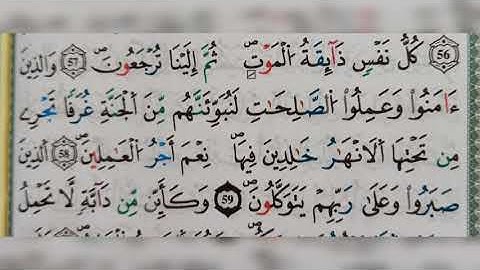 56 كُلُّ نَفْسٖ ذَآئِقَةُ اُ۬لْمَوْتِۖ ثُمَّ إِلَيْنَا تُرْجَعُونَۖ 57 وَالذِينَ
ءَامَنُواْ وَعَمِلُواْ اُ۬لصَّٰلِحَٰتِ لَنُبَوِّئَنَّهُم مِّنَ اَ۬لْجَنَّةِ غُرَفاٗ تَجْرِے
مِن تَحْتِهَا اَ۬لَانْهَٰرُ خَٰلِدِينَ فِيهَاۖ نِعْمَ أَجْرُ اُ۬لْعَٰمِلِينَۖ 58 اَ۬لذِينَ
صَبَرُواْ وَعَلَىٰ رَبِّهِمْ يَتَوَكَّلُونَۖ 59 وَكَأَيِّن مِّن دَآبَّةٖ لَّا تَحْمِلُ